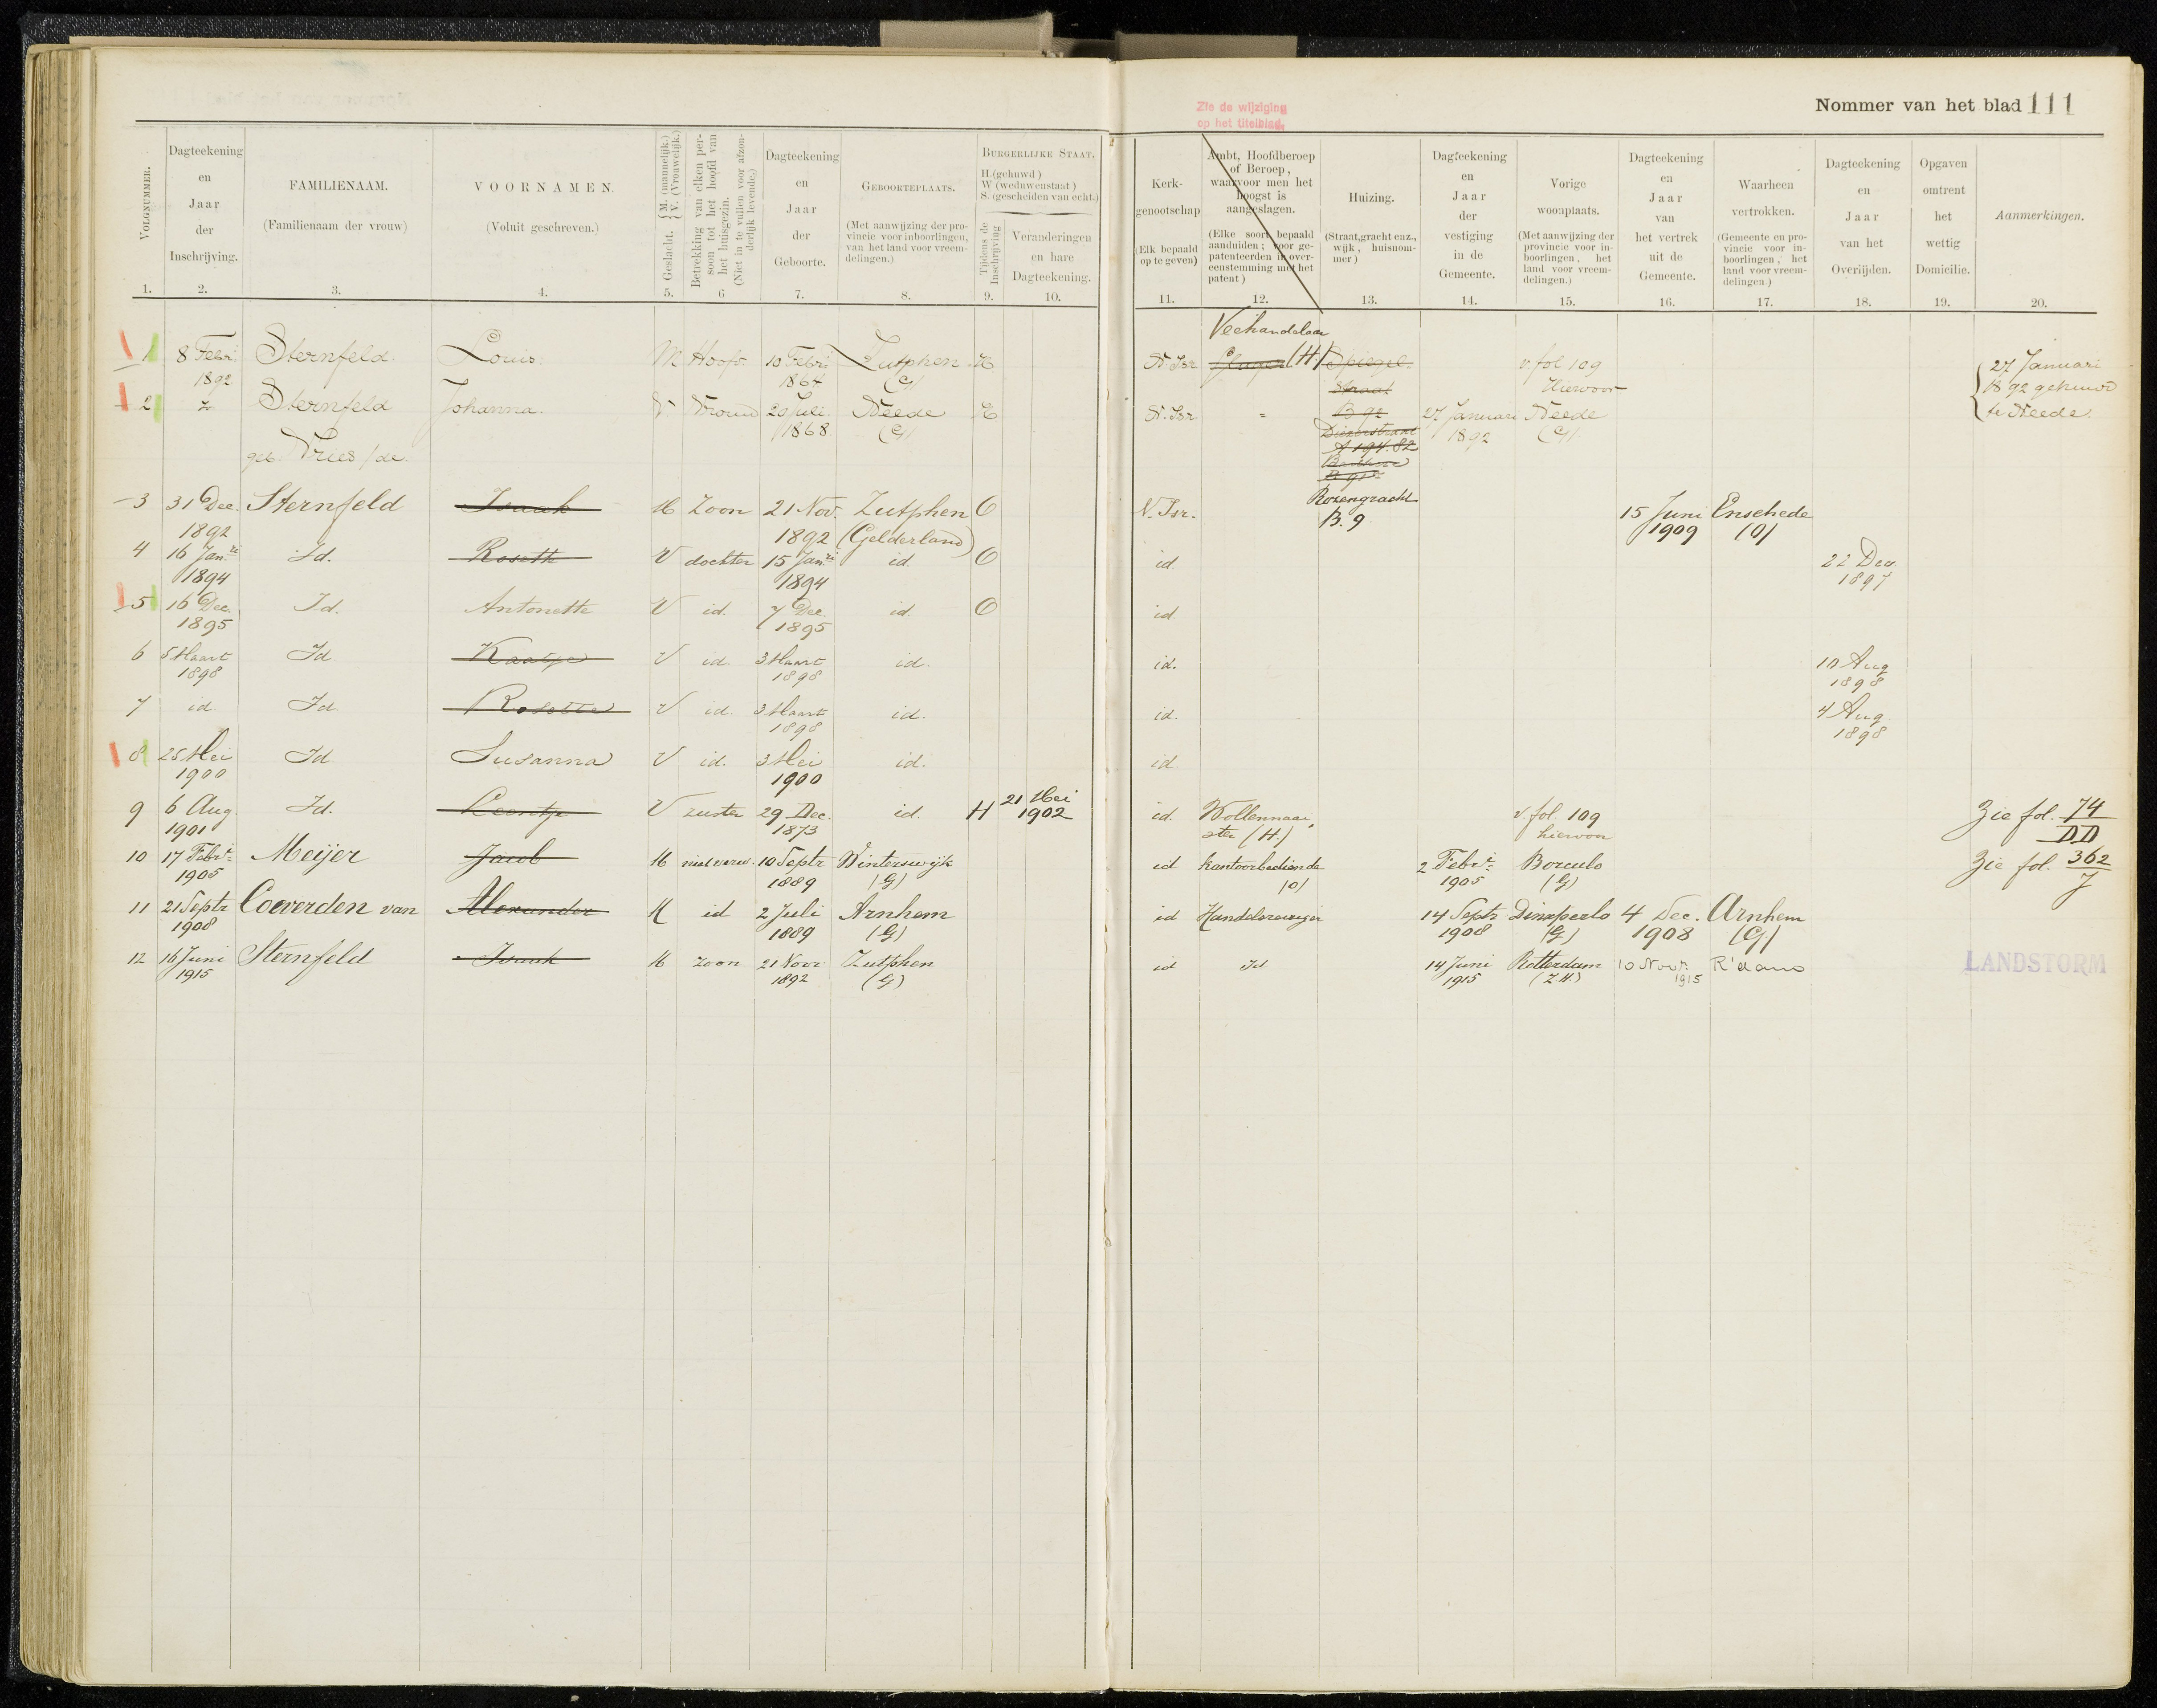 Zie de wijziging
op het titelblad.
Nommer van het blad 111
VOLGNUMMER.
1.
Dagteekening
en
Jaar
der
Inschrijving.
2.
FAMILIENAAM.
(Familienaam der vrouw)
3.
VOORNAMEN.
(Voluit geschreven.)
4.
Geslacht. { M. (mannelijk.) V. (Vrouwelijk.)
5.
Betrekking van elken per-
soon tot het hoofd van
het huisgezin.
(Niet in te vullen voor afzon-
derlijk levende.)
6
Dagteekening
en
Jaar
der
Geboorte.
7.
GEBOORTEPLAATS.
(Met aanwijzing der pro-
vincie voor inboorlingen,
van het land voor vreem-
delingen.)
8.
BURGERLIJKE STAAT.
H.(gehuwd)
W (weduwenstaat)
S. (gescheiden van echt.)
Tijdens de
Inschrijving
9.
Veranderingen
en hare
Dagteekening.
10.
Kerk-
genootschap
(Elk bepaald
op te geven)
11.
Ambt, Hoofdberoep
of Beroep,
waarvoor men het
hoogst is
aangeslagen.
(Elke soort bepaald
aanduiden; voor ge-
patenteerden in over-
eenstemming met het
patent)
12.
Huizing.
(Straat, gracht enz.,
wijk, huisnom-
mer)
13.
Dagteekening
en
Jaar
der
vestiging
in de
Gemeente.
14.
Vorige
woonplaats.
(Met aanwijzing der
provincie voor in-
boorlingen, het
land voor vreem-
delingen.)
15.
Dagteekening
en
Jaar
van
het vertrek
uit de
Gemeente.
16.
Waarheen
vertrokken.
(Gemeente en pro-
vincie voor in-
boorlingen, het
land voor vreem-
delingen.)
17.
Dagteekening
en
Jaar
van het
Overlijden.
18.
Opgaven
omtrent
het
wettig
Domicilie.
19.
Aanmerkingen.
20.
Veehandelaar
1 8 Febr. Sternfeld. Louis. M Hoofd. 10 Febri Zutphen H N. Isr. Slager (H.) Spiegel- v. fol 109 27 Januari
1892 1864 (G) straat Hiervoor 1892 gehuwd
2 Sternfeld Johanna. V. Vrouw 20 Juli Neede H N. Isr. = B 92 27 Januari Neede te Neede.
1868 (G) Diezerstraat 1892 (G)
geb. Vries /de A 194. 82
Rozengracht
B. 9
3 31 Dec. Sternfeld Isaak M Zoon 21 Nov. Zutphen O N. Isr. 15 Juni Enschede
1892 1892 (Gelderland) 1909 (O)
4 16 Jan. Id. Roseth V dochter 15 Jan. id. O id 22 Dec
1894 1894 1897
5 16 Dec. Id. Antonette V id. 7 Dec. id. O id.
1895 1895
6 5 Maart Id Kaatje V id. 3 Maart id. id. 10 Aug
1898 1898 1898
7 id. Id. Rosette V id. 3 Maart id. id. 4 Aug.
1898 1898
8 25 Mei Id Susanna V id. 3 Mei id. id.
1900 1900
9 6 Aug Id. Leentje V zuster 29 Dec. id. H 21 Mei id. Wollennaai- v. fol. 109 Zie fol. 74
1901 1873 1902 ster (H.) hiervoor DD
10 17 Febr. Meijer Jacob M niet verw. 10 Septr Winterswijk id Kantoorbediende 2 Febr. Borculo Zie fol. 362
1905 1889 (G) (O) 1905 (G) J
11 21 Septr Coeverden van Alexander M id 2 Juli Arnhem id Handelsreiziger 14 Septr Dinxperlo 4 Dec. Arnhem
1908 1889 (G) 1908 (G) 1908 (G)
12 16 Juni Sternfeld Isaak M zoon 21 Novr Zutphen id Id 14 Juni Rotterdam 10 Novr. R'dam LANDSTORM
1915 1892 (G) 1915 (Z.H.) 1915